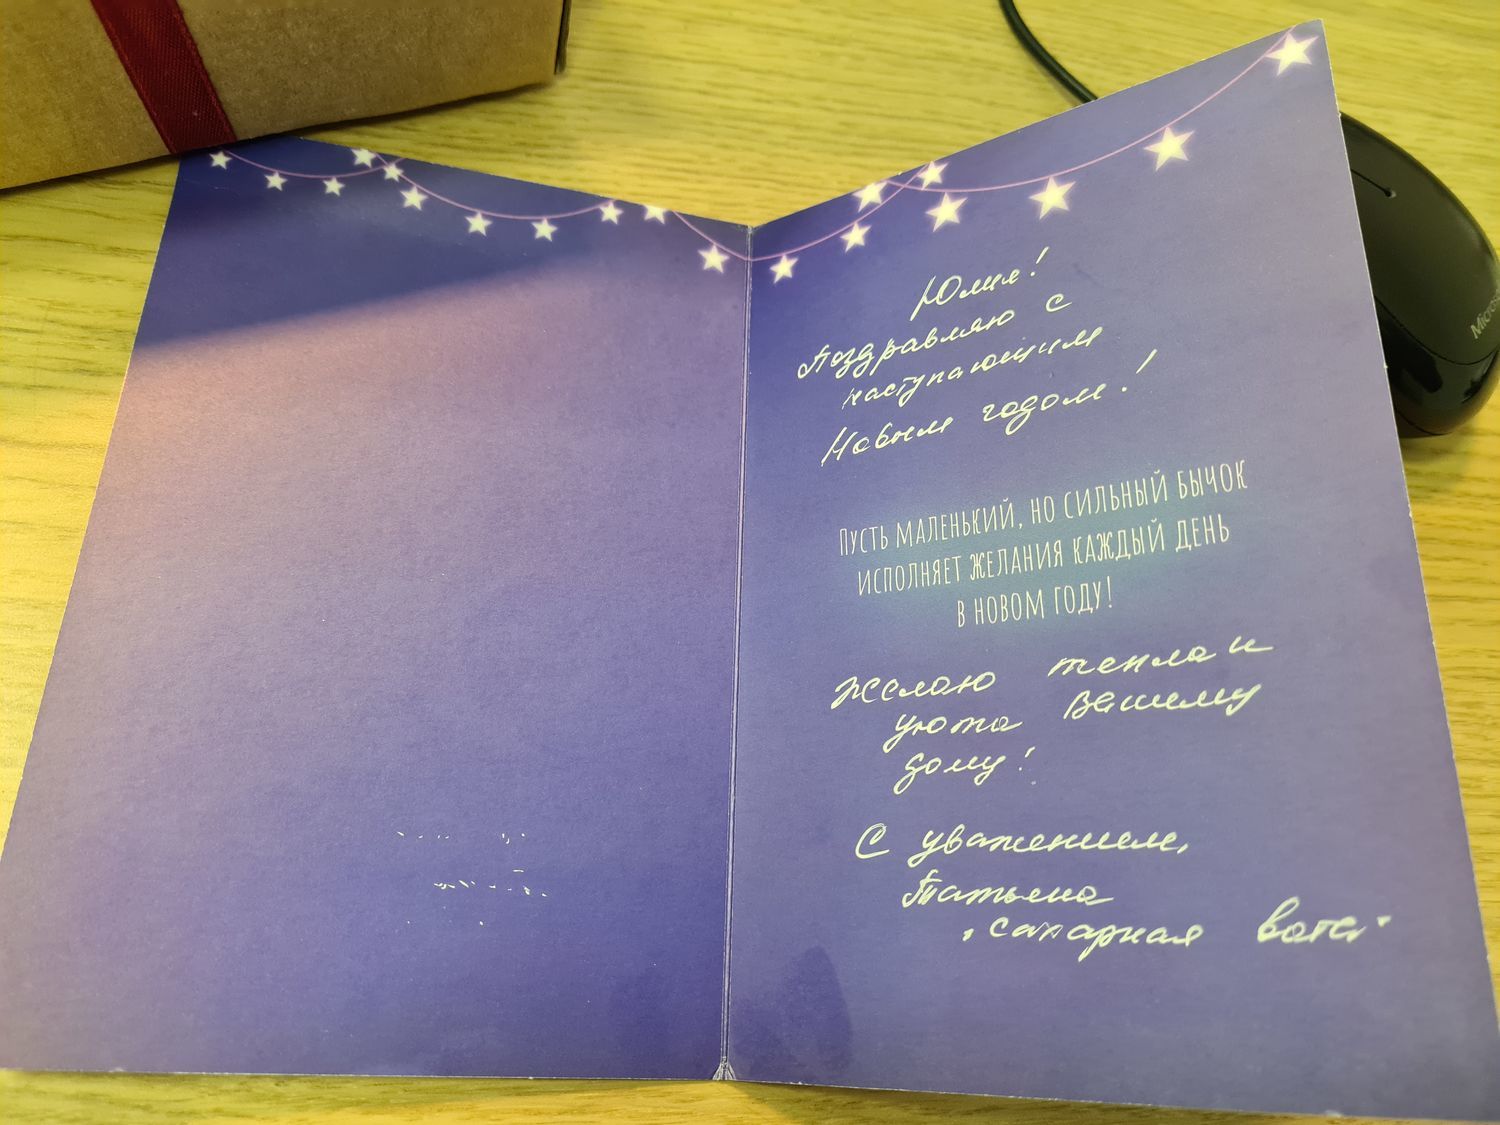 Юлия!
Поздравляю с
наступающим
Новым годом!
Пусть маленький, но сильный бычок
исполняет желания каждый день
в новом году!
Желаю тепла и
уюта Вашему
дому!
С уважением,
Татьяна
"сахарная вата"